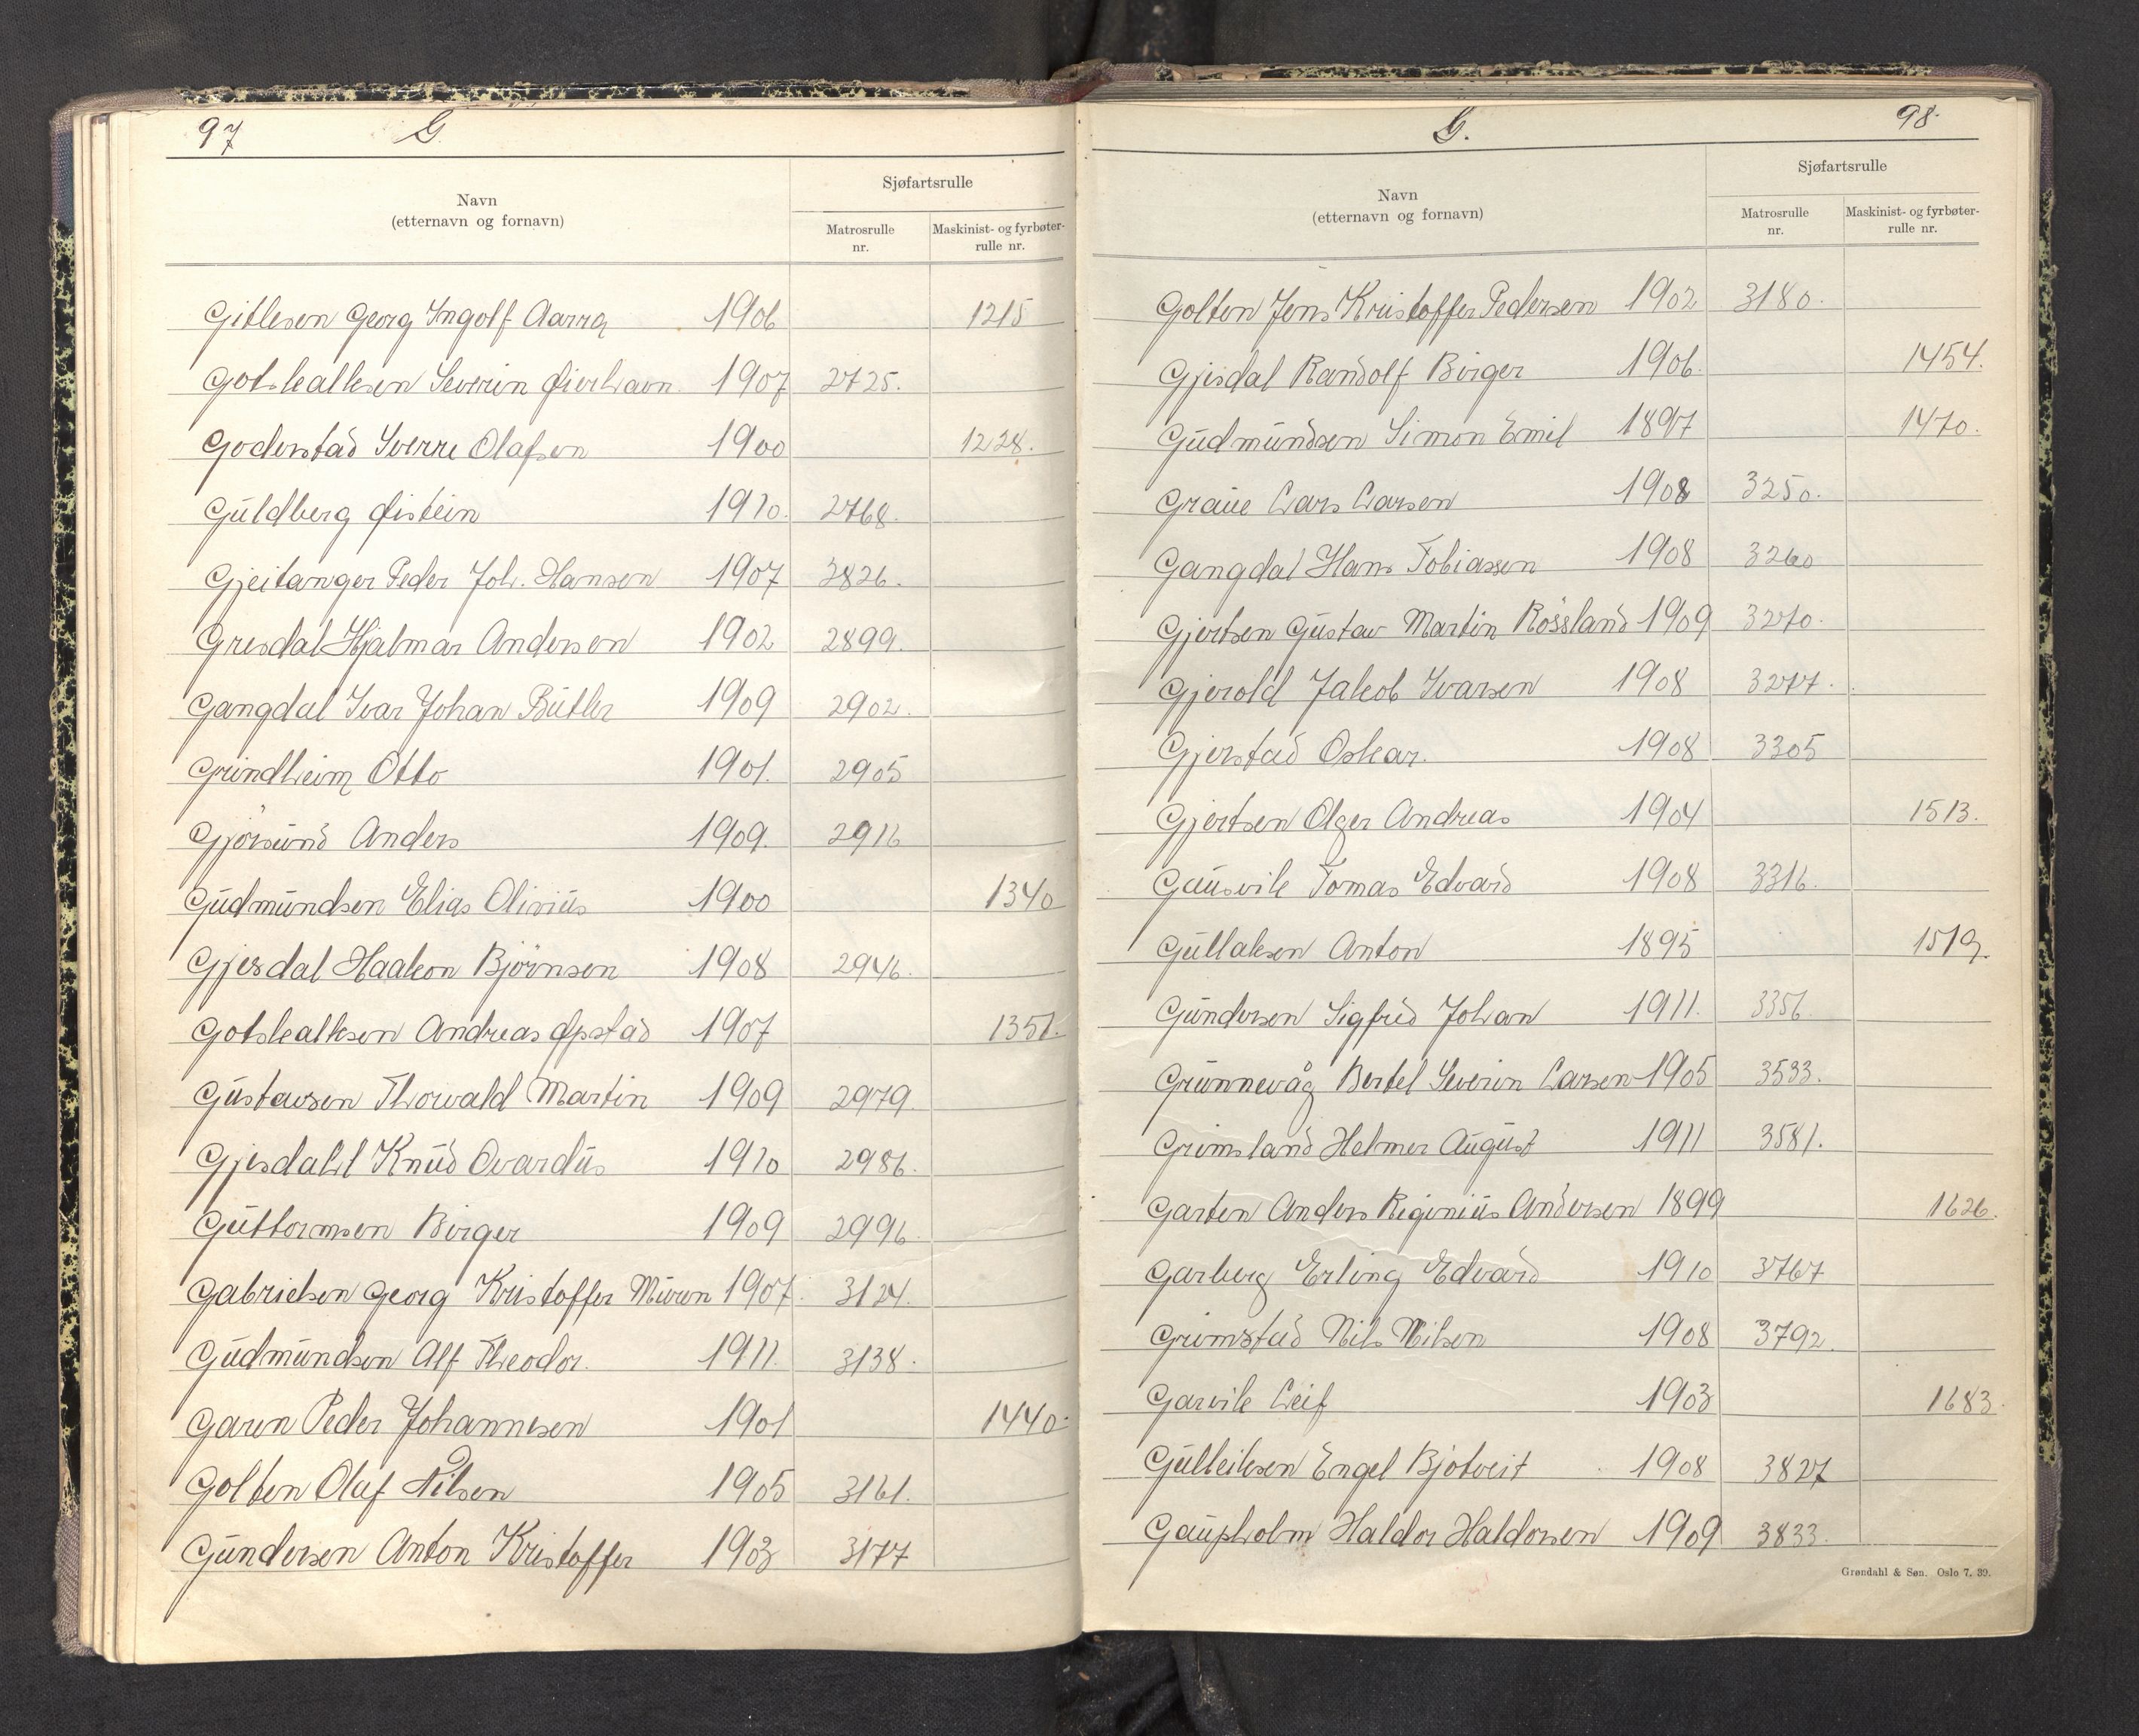 97 G.
Sjøfartsrulle
Navn
(etternavn og fornavn)
Matrosrulle nr.
Maskinist- og fyrbøter-rulle nr.
Gitlesen Georg Ingolf Aarra 1906 1215
Gotskalksen Severin 1907 2725.
Goderstad Sverre Olafsen 1900 1228.
Guldberg Øistein 1910. 2768.
Gjeitanger Peder Joh. Hansen 1907 2826.
Gresdal Hjalmar Andersen 1902 2899.
Gangdal Ivar Johan Butler 1909 2902.
Grindheim Otto 1901. 2905
Gjørsund Anders 1909. 2916
Gudmundsen Elias Olivius 1900 1340
Gjesdal Haakon Bjørnsen 1908 2946.
Gotskalksen Andreas Øpstad 1907 1351.
Gustavsen Thorvald Martin 1909 2979.
Gjesdahl Knud Ovardus 1910 2986.
Guttormsen Birger 1909 2996.
Gabrielsen Georg Kristoffer Muren 1907. 3124.
Gudmundsen Alf Theodor. 1911. 3138.
Garen Peder Johannesen 1901 1440.
Golten Olaf Nilsen 1905 3161.
Gundersen Anton Kristoffer 1903 3177
G. 98.
Sjøfartsrulle
Navn
(etternavn og fornavn)
Matrosrulle nr.
Maskinist- og fyrbøter-rulle nr.
Golten Jens Kristoffer Pedersen 1902 3180.
Gjesdal Randolf Birger 1906. 1454.
Gudmundsen Simon Emil 1897 1470.
Graue Lars Larsen 1908 3250.
Gangdal Hans Tobiassen 1908 3260
Gjertsen Gustav Martin Røssland 1909 3270.
Gjerold Jakob Ivarsen 1908 3277.
Gjerstad Oskar. 1908 3305
Gjertsen Olger Andreas 1904 1513.
Gausvik Tomas Edvard 1908 3316.
Gullaksen Anton 1895 1519.
Gundersen Sigfred Johan 1911. 3356
Grunnevåg Bertel Severin Larsen 1905 3533.
Grimsland Helmer August 1911 3581.
Garten Anders Reginius Andersen 1899 1626.
Garberg Erling Edvard 1910 3767
Grimstad Nils Nilsen 1908 3792.
Garvik Leif 1903 1683.
Gulleiksen Engel Bjotveit 1908 3827
Gaupholm Haldor Haldorsen 1909 3833.
Grøndahl & Søn. Oslo 7. 39.